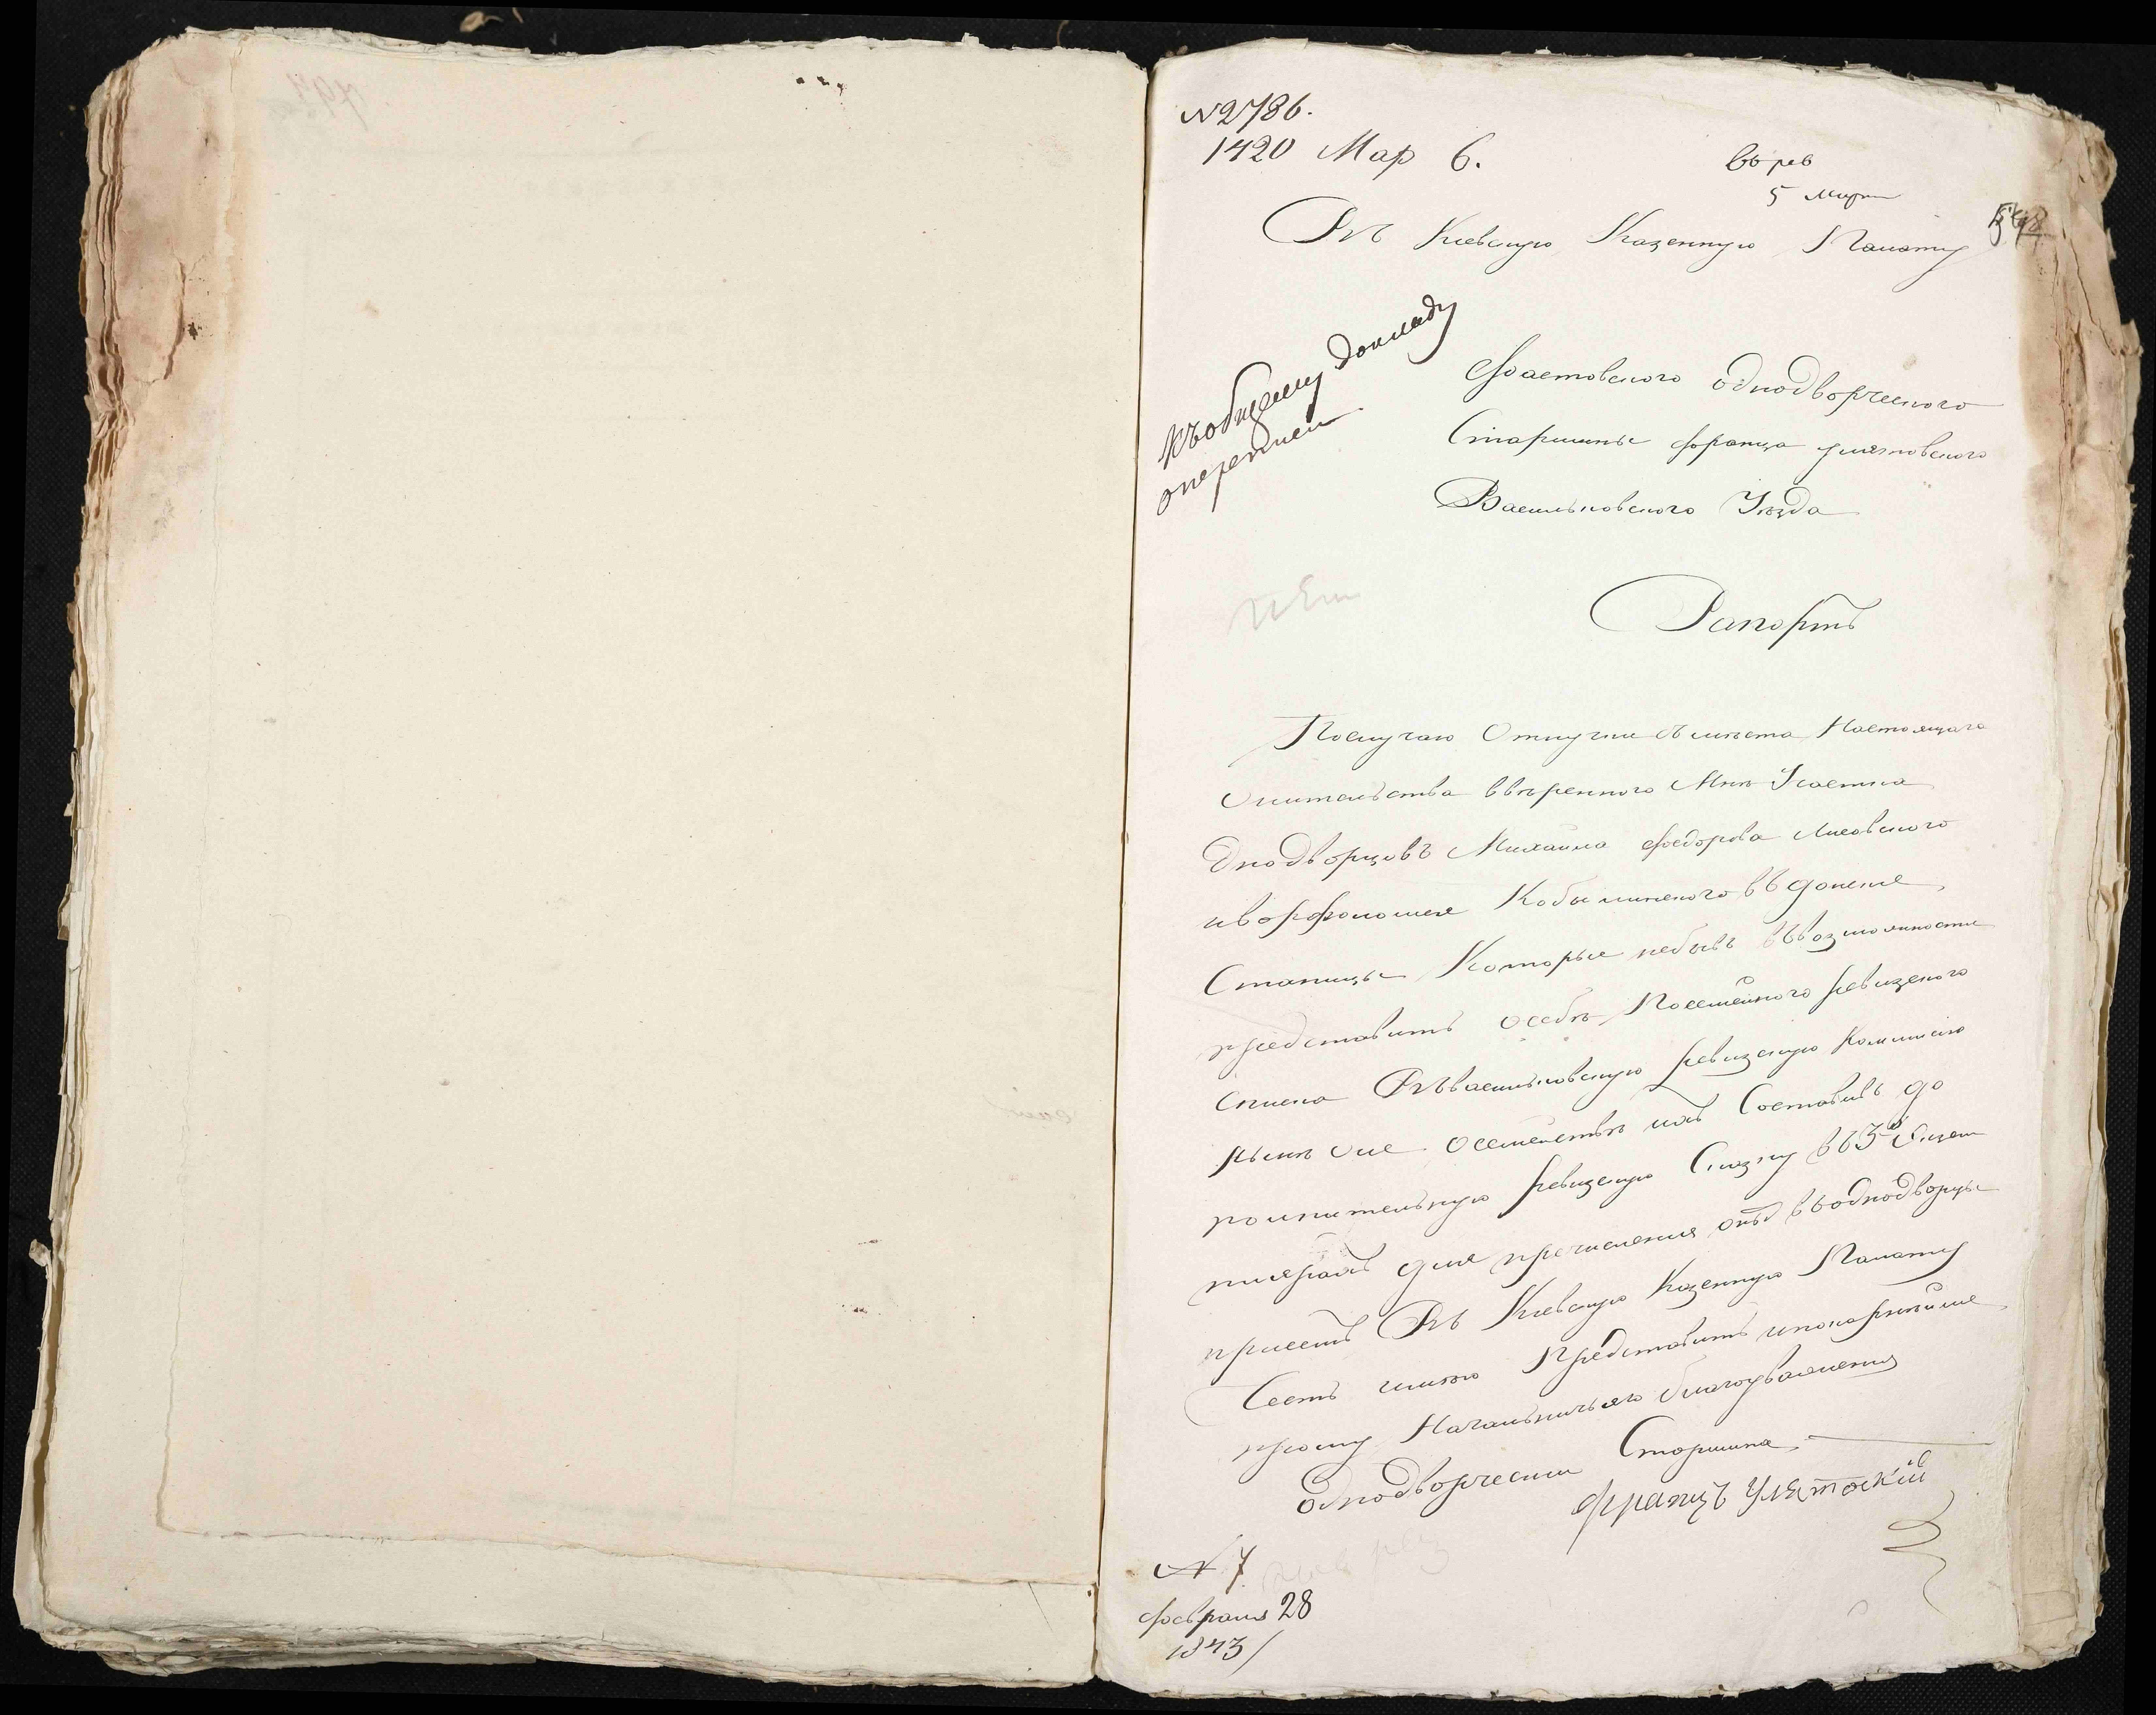 № 2786.
1420 Мар 6.
въ рев
5 марта
Въ Киевскую Казенную Палату
Къ общему докладу
о
Фастовского однодворческого
Старшины Франца
Васильковского Уѣзда
Рапортъ
Послучаю Отлучки съ мѣста Настоящаго
жительства ввѣренного Мнѣ Участка
днодворцовъ Михаила Федорова Лисовского
иворфоломея Кобылинского въ донские
Станицы Которые небывъ ввозможности
представить осебѣ Посемейного ревизского
списка Въваськовскую ревизскую Комисию
нынѣ оне осемействѣ ихъ Составивъ до
полнительную ревизскую Сказку въ 3й Экзем
плярахъ для причисления онъхъ въоднодворцы
присемъ Въ Киевскую Казенную Палату
Честь имѣю Представить ипокорнѣйше
прошу Начальничьяго благоуваженія
Однодворчески Старшина
францъ
№ 7
февраля 28
1843